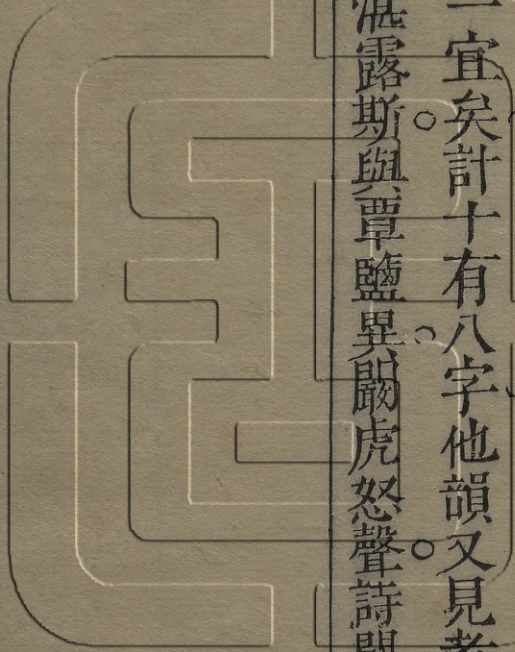 一宜矣計十有八字他韻又見者
湛露斯與覃鹽異闞虎怒聲詩闞